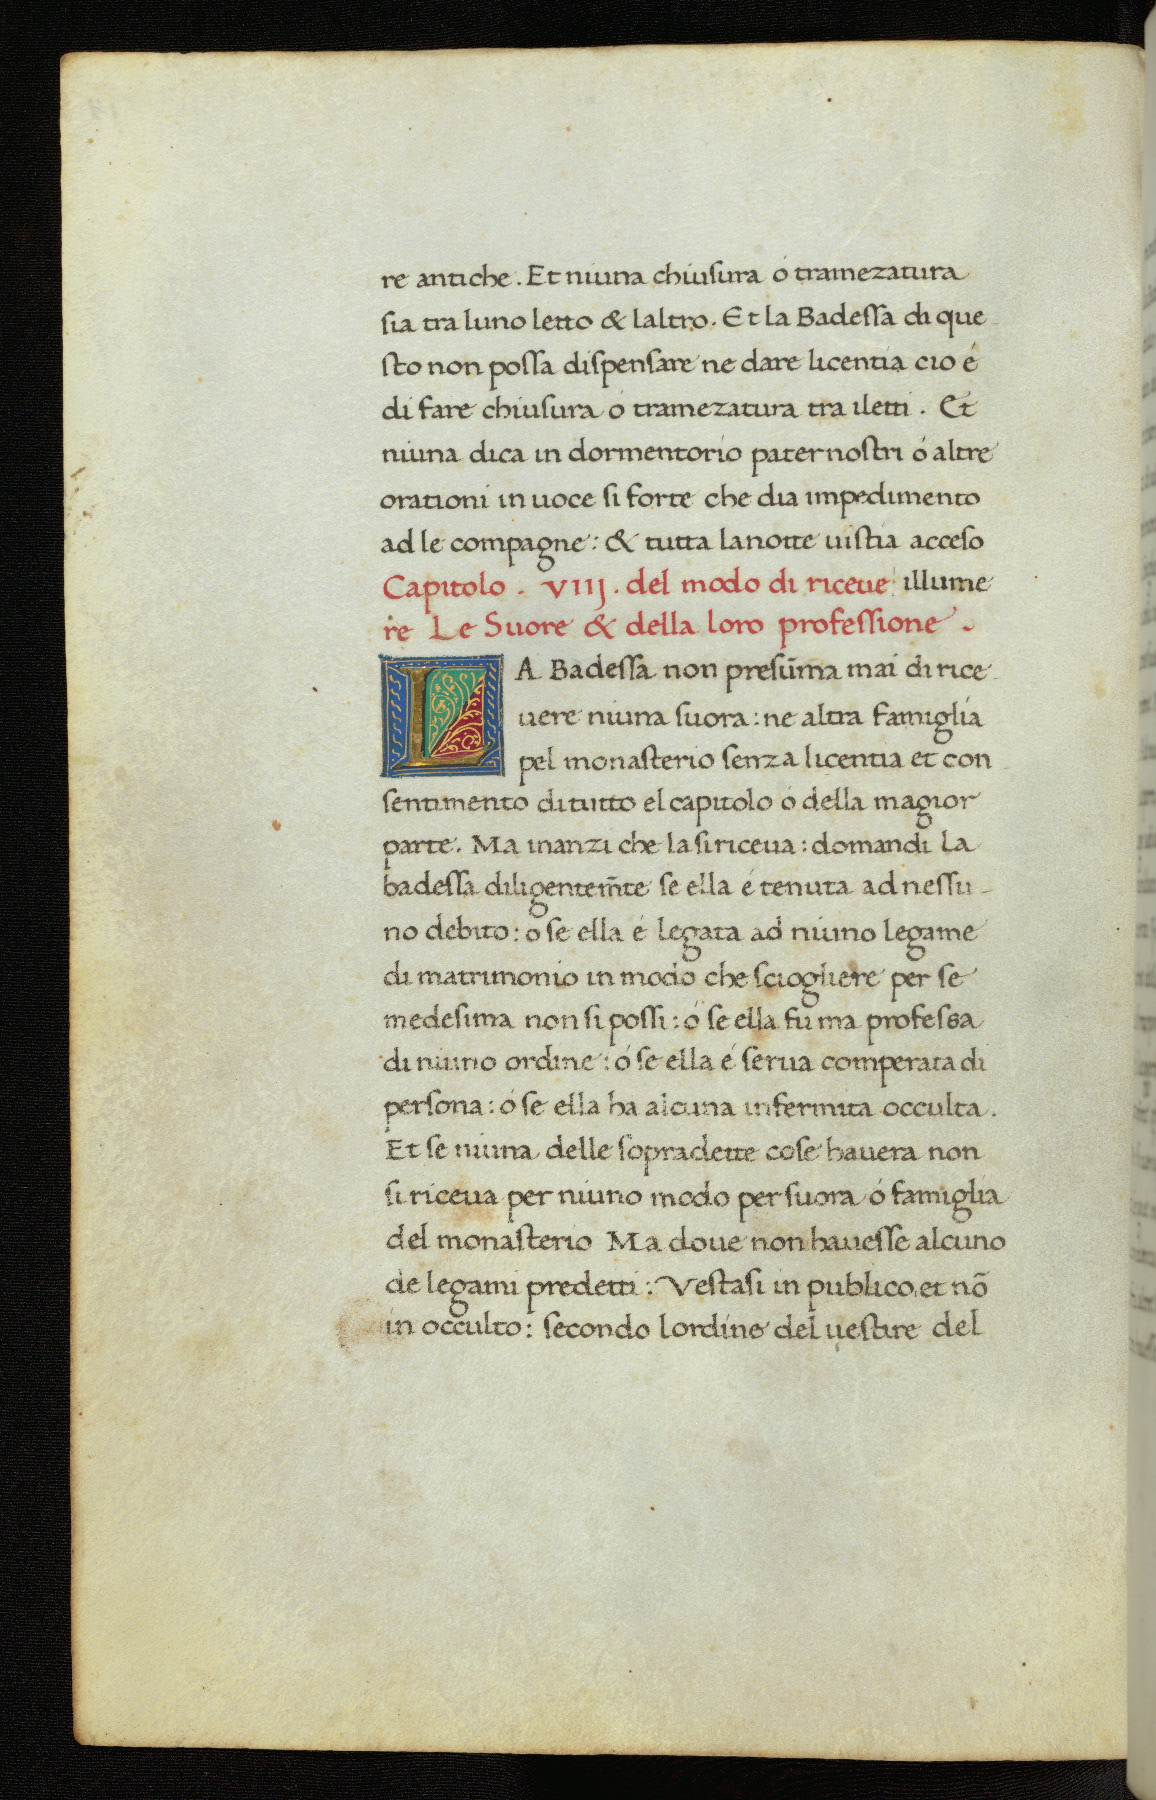 re antiche. Et niuna chiusura ó tramezatura
sia tra luno letto & laltro. Et la Badessa di que
sto non possa dispensare ne dare licentia cio é
di fare chiusura ó tramezatura tra iletti. Et
niuna dica in dormentorio paternostri ó altre
orationi in uoce si forte che dia impedimento
ad le compagne: & tutta lanotte uistia acceso
Capitolo . VIIJ . del modo di riceue illume
re Le Suore & della loro professione .
LA Badessa non presūma mai di rice
uere niuna suora: ne altra famiglia
pel monasterio senza licentia et con
sentimento di tutto el capitolo ó della magior
parte. Ma inanzi che la si riceua: domandi la
badessa diligentem̄te se ella é tenuta ad nessu
no debito: o se ella é legata ad niuno legame
di matrimonio in modo che sciogliere per se
medesima non si possi: ó se ella fu ma professa
di niuno ordine: ó se ella é serua comperata di
persona: ó se ella ha alcuna infermita occulta.
Et se niuna delle sopradette cose hauera non
si riceua per niuno modo per suora ó famiglia
del monasterio Ma doue non hauesse alcuno
de legami predetti: Vestasi in publico, et nō
in occulto: secondo lordine del uestire del